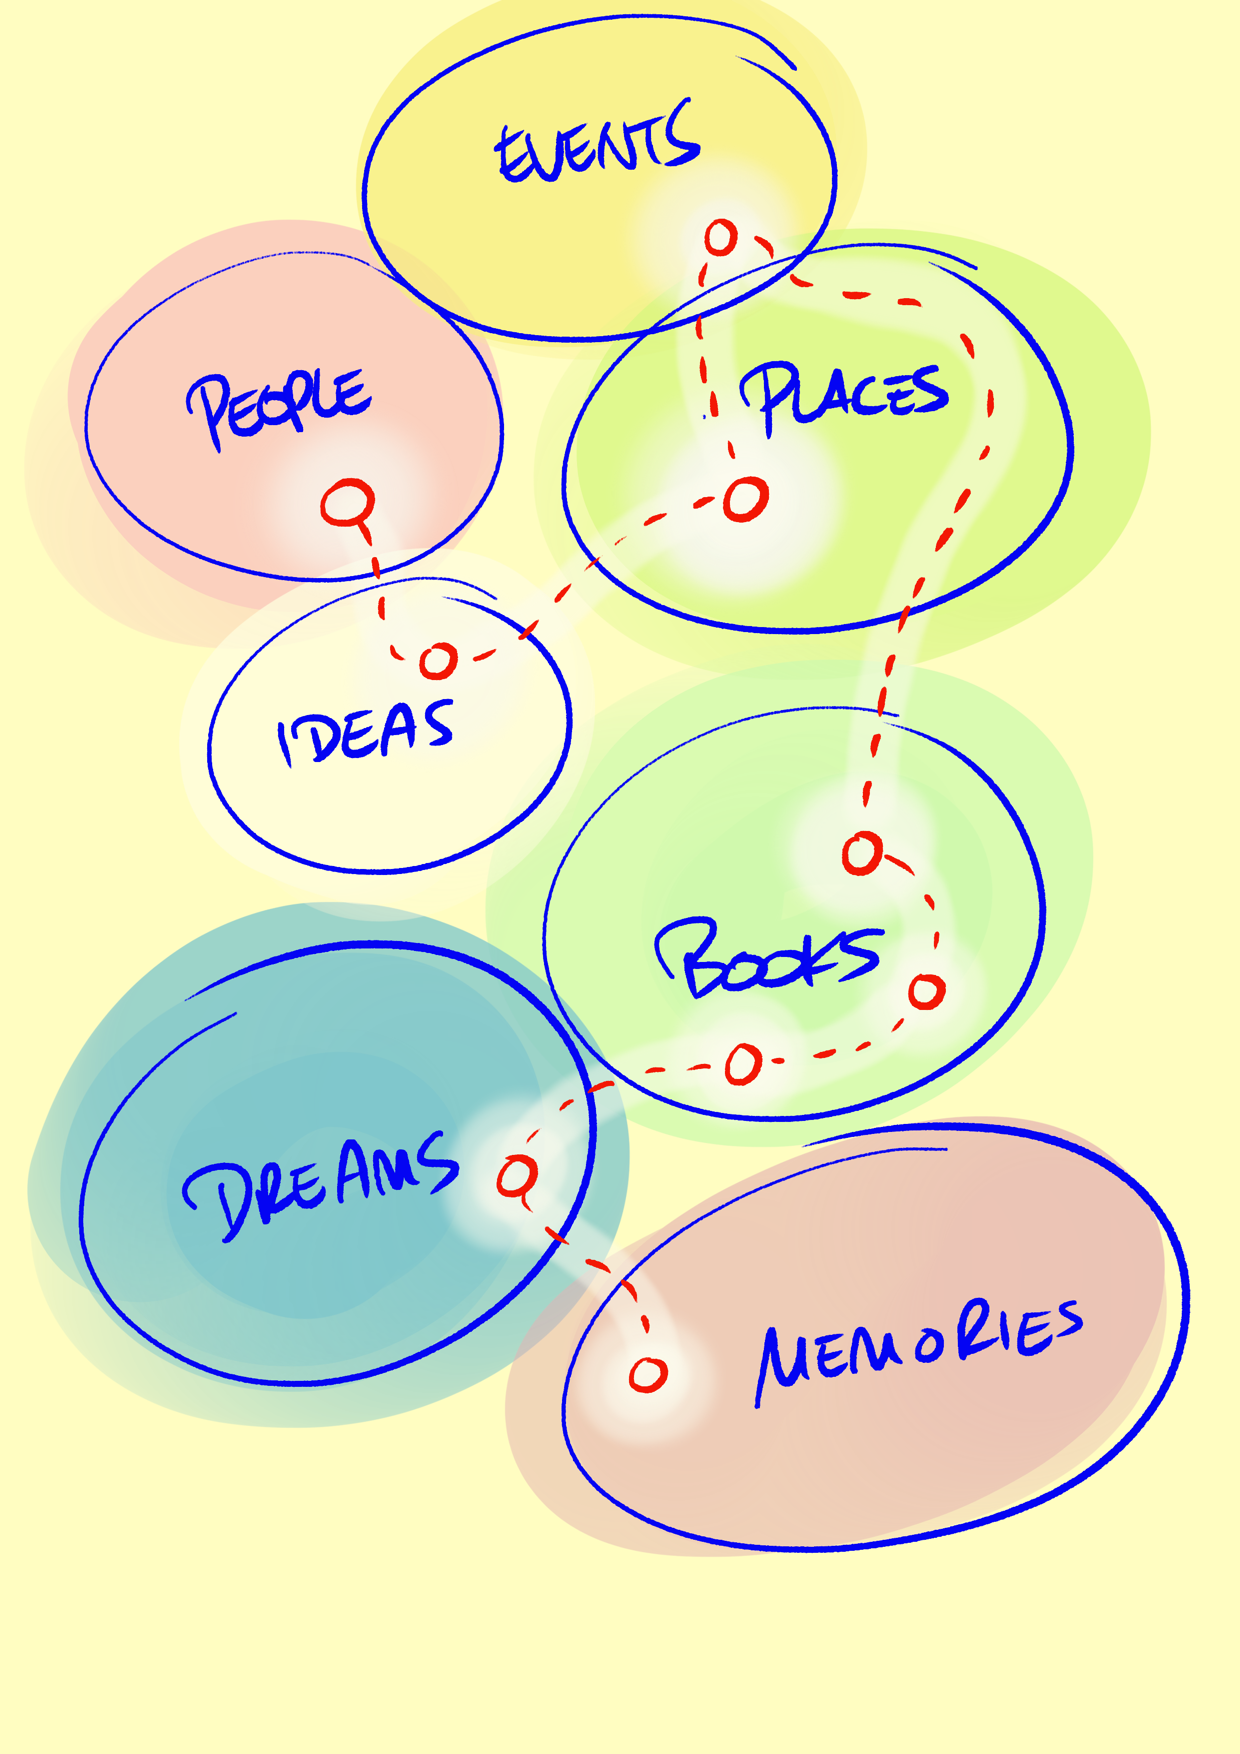 EVENTS
PEOPLE
PLACES
IDEAS
BOOKS
DREAMS
MEMORIES